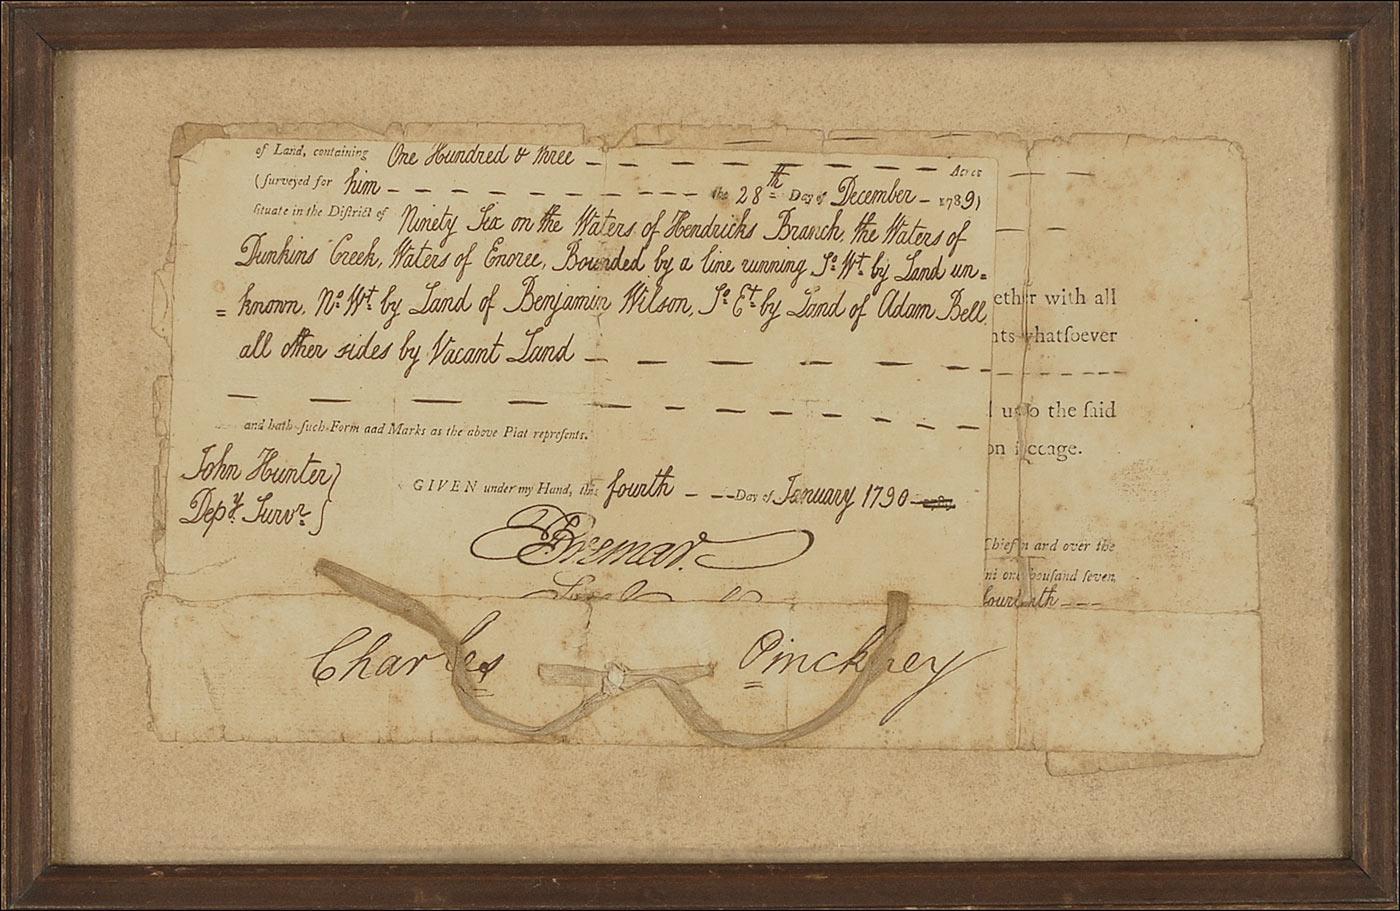 of Land, containing One Hundred & three — — — — — — — Acres
(surveyed for him — — — — — — — — — — the 28th Day of December — 1789)
situate in the District of Ninety Six on the Waters of Hendricks Branch, the Waters of
Dunkins Creek, Waters of Enoree, Bounded by a line running So. Wt. by Land un=
=known, No. Wt. by Land of Benjamin Wilson, So. Et. by Land of Adam Bell,
all other sides by Vacant Land — — — — — —
and hath such Form aad Marks as the above Plat represents.
John Hunter }
Depy. Survr. }
GIVEN under my Hand, this fourth — — Day of January 1790
Bremar.
Charles Pinckney
ether with all
nts whatsoever
unto the said
on soccage.
Chief in and over the
one thousand seven
fourteenth — — —